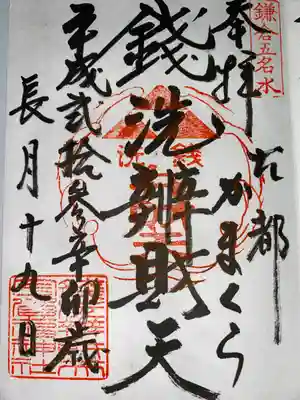 鎌倉五名水
奉拝
古都
かまくら
錢洗辨財天
平成弐拾参辛卯歳
長月十九日